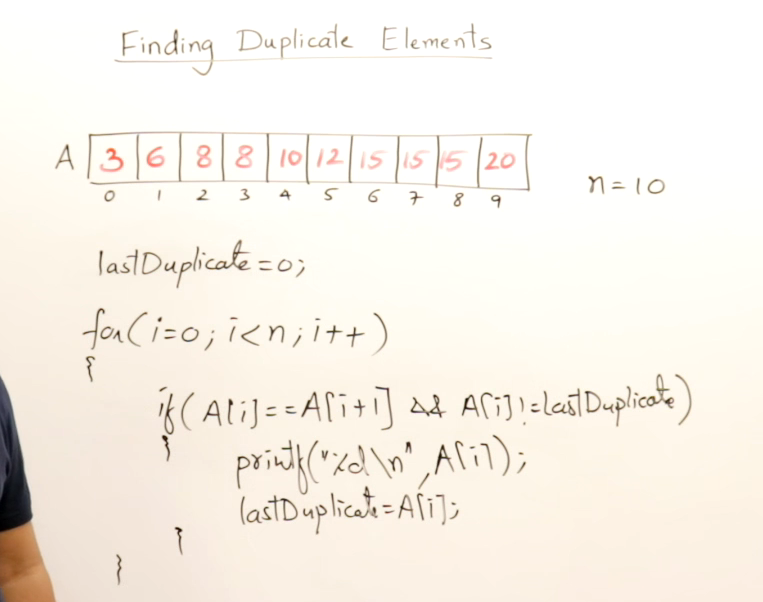 Finding Duplicate Elements
A 3 6 8 8 10 12 15 15 15 20
0 1 2 3 4 5 6 7 8 9
n=10
lastDuplicate=0;
for(i=0; i<n; i++)
{
if(A[i]==A[i+1] && A[i]!=lastDuplicate)
{
printf("%d\n",A[i]);
lastDuplicate=A[i];
}
}